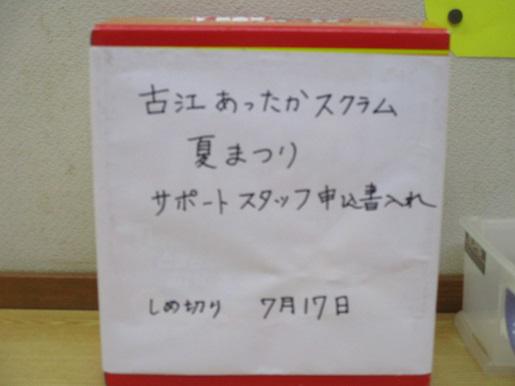 古江あったかスクラム
夏まつり
サポートスタッフ申込書入れ
しめ切り 7月17日